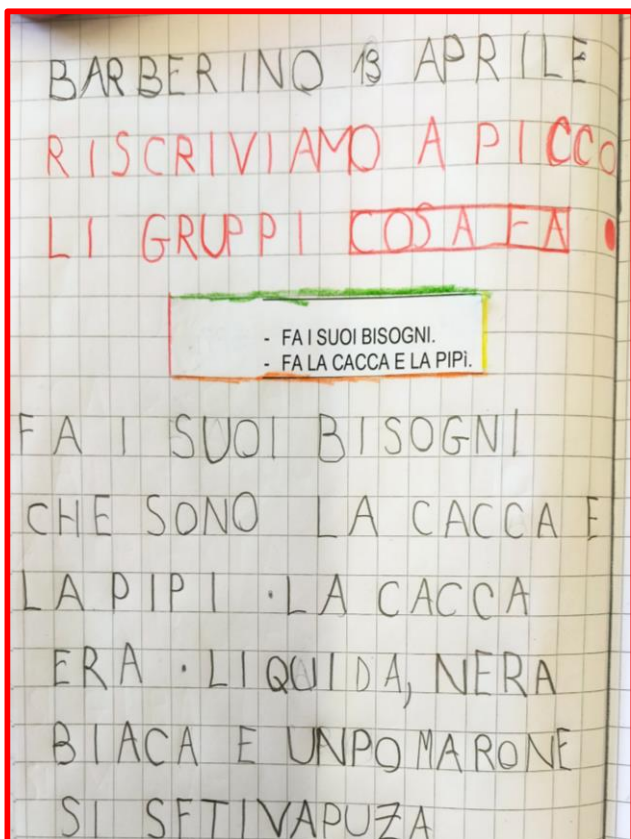 BARBERINO 13 APRILE
RISCRIVIAMO A PICCO
LI GRUPPI COSA FA
- FA I SUOI BISOGNI.
- FA LA CACCA E LA PIPì.
FA I SUOI BISOGNI
CHE SONO LA CACCA E
LA PIPI . LA CACCA
ERA . LIQUIDA, NERA
BIACA E UNPO MARONE
SI SETIVAPUZA